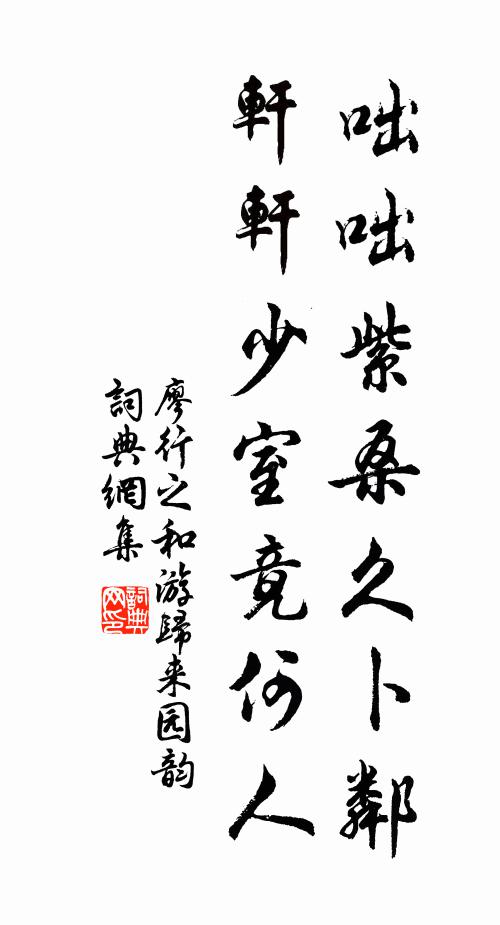 咄咄紫桑久卜鄰
軒軒少室竟何人
廖行之和游歸来园韵
詞典網集
詞典网印